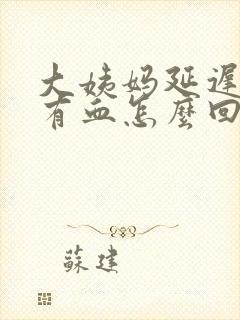 大姨妈延遲
有血怎麼回
蘇建